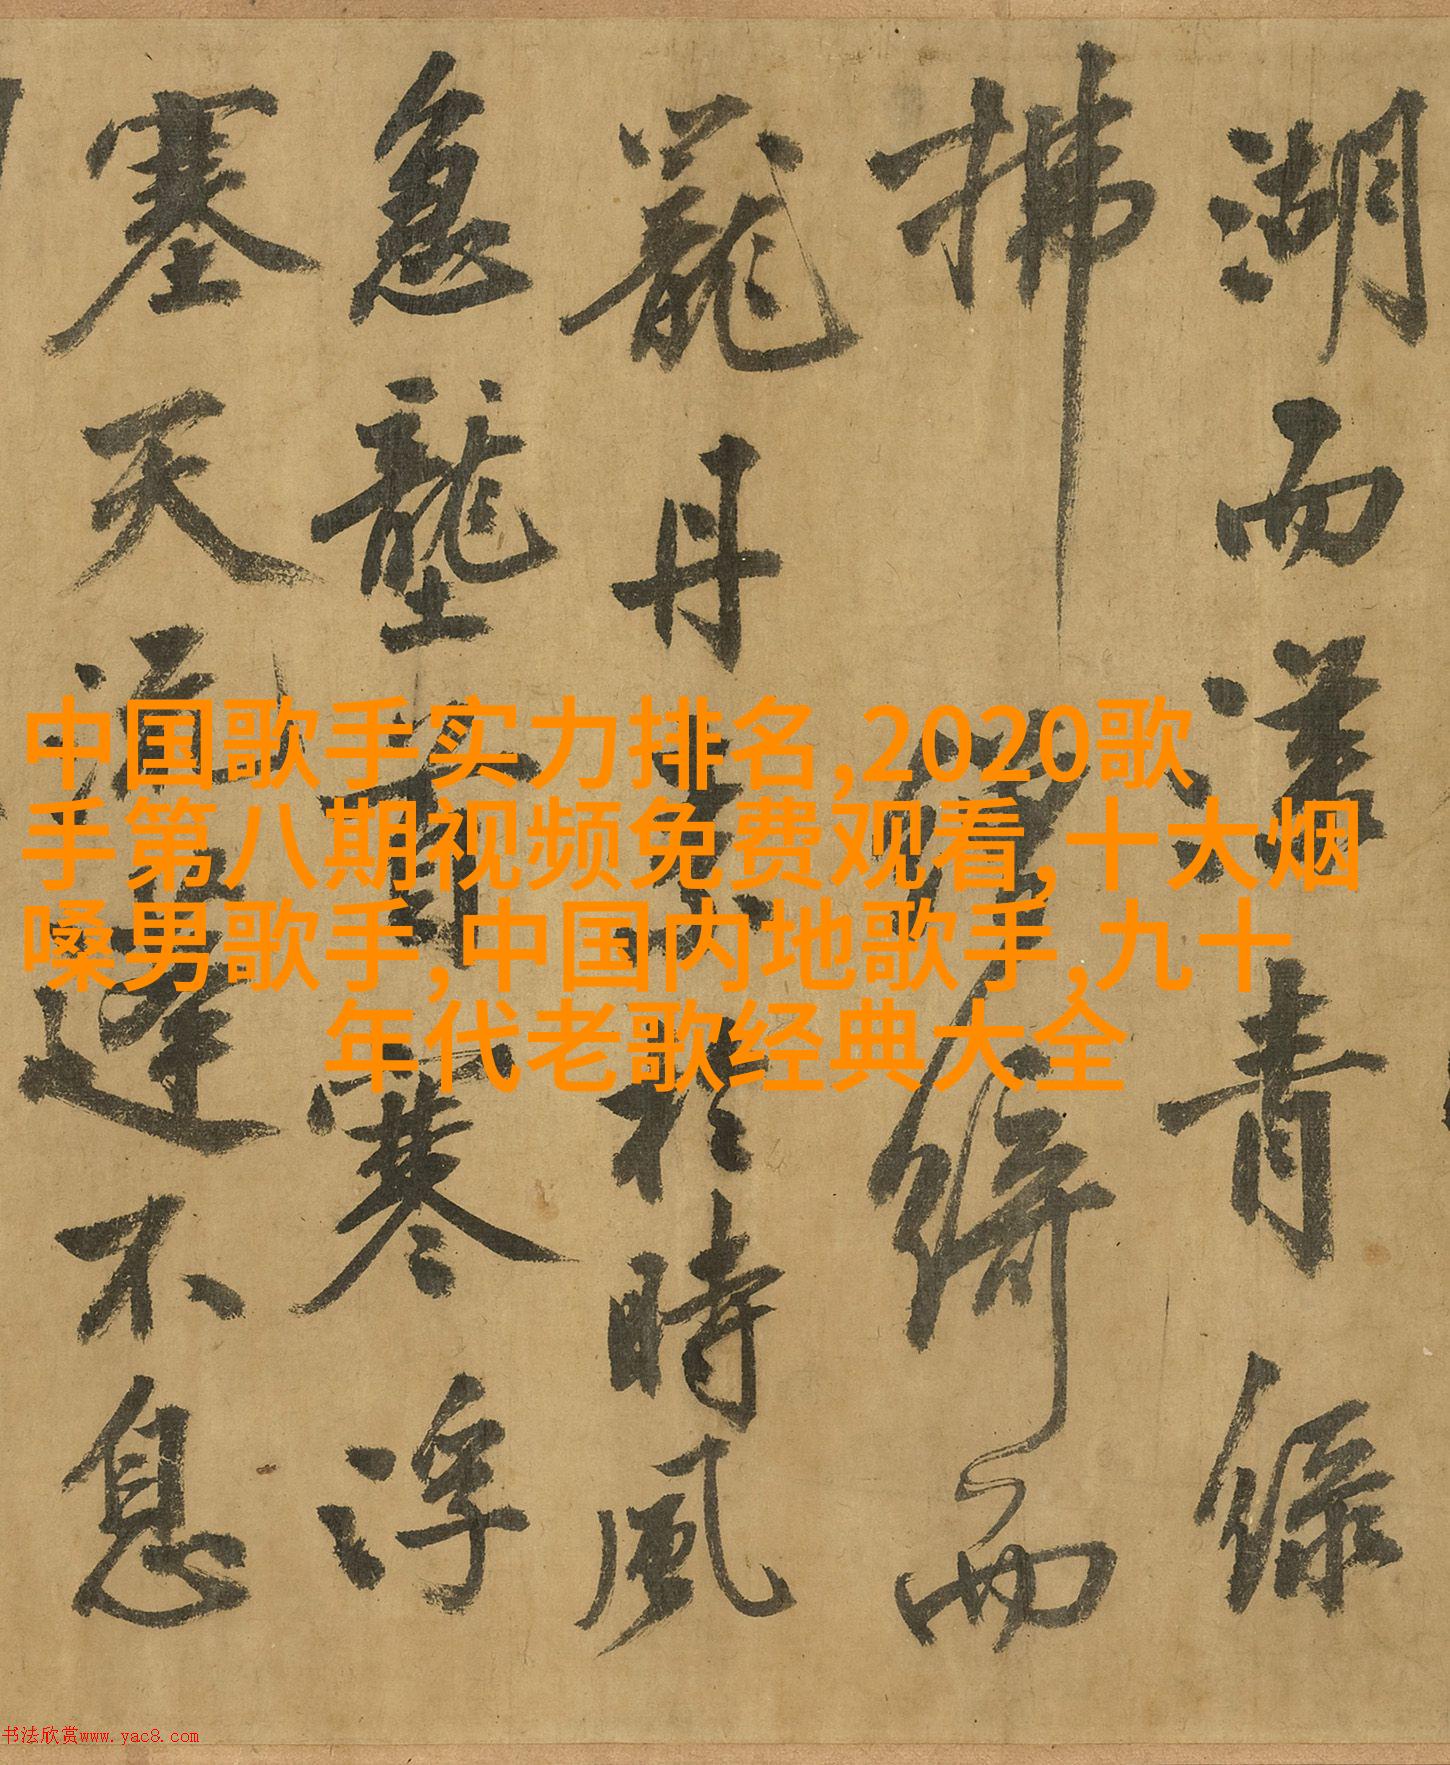 湖而漾青綠
拂綺而
籠丹素於時風
急壟首寒浮
塞天流蓬不息
中国歌手实力排名,2020歌
手第八期视频免费观看,十大烟
嗓男歌手,中国内地歌手,九十
年代老歌经典大全
书法欣赏www.yac8.com